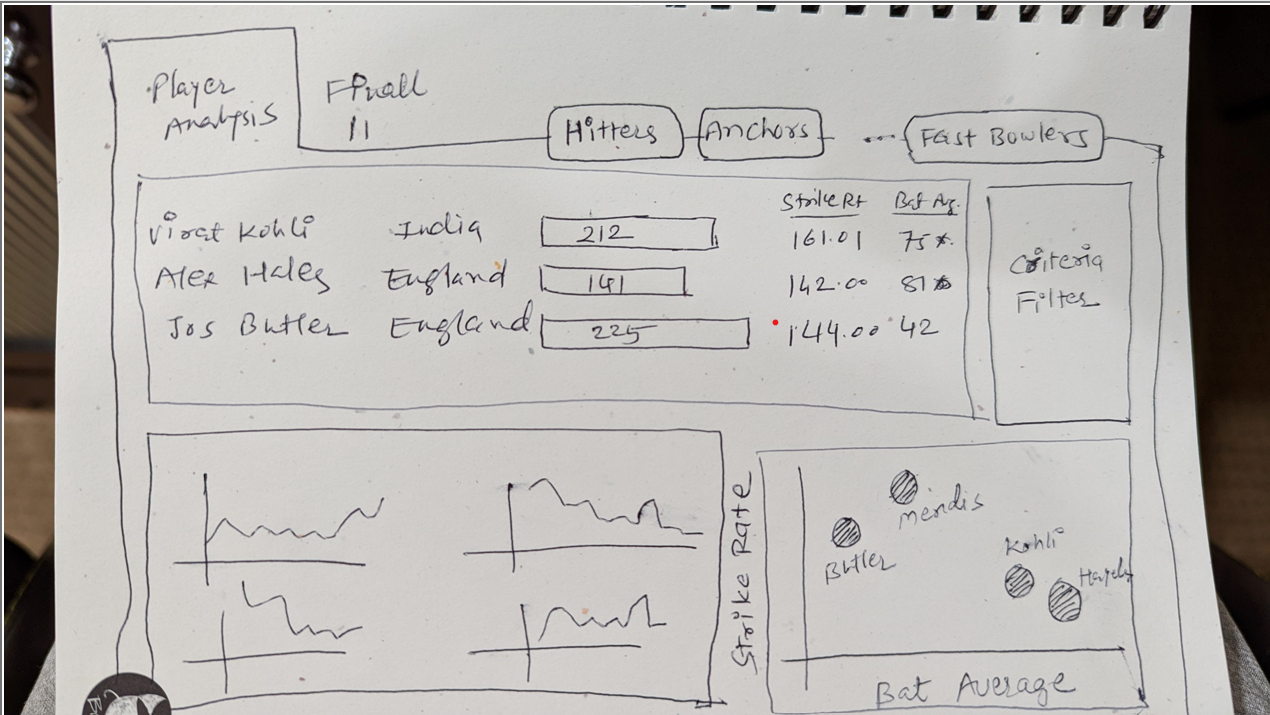 Player
Analysis
Finall
11
Hitters
Anchors
....
Fast Bowlers
Strike Rt
Bat Ag.
Virat Kohli India 212 161.01 75*.
Alex Hales England 141 142.00 81*
Jos Butler England 225 144.00 42
Criteria
Filter
Strike Rate
Mendis
Butler
Kohli
Bat Average